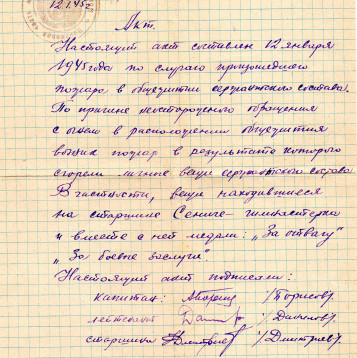 12.1.45
Акт.
Настоящий акт составлен 12 января
1945 года по случаю происшедшего
пожара в общежитии сержантского состава.
По причине неосторожного обращения
с огнем в расположении общежития
возник пожар в результате которого
сгорели личные вещи сержантского состава
В частности, вещи находившиеся
на старшине Сениге - гимнастерка
и вместе с ней медали: „За отвагу"
„За боевые заслуги"
Настоящий акт подписали:
капитан: /Борисов/.
лейтенант /Данилов/.
старшина Дмитриев /Дмитриев/.